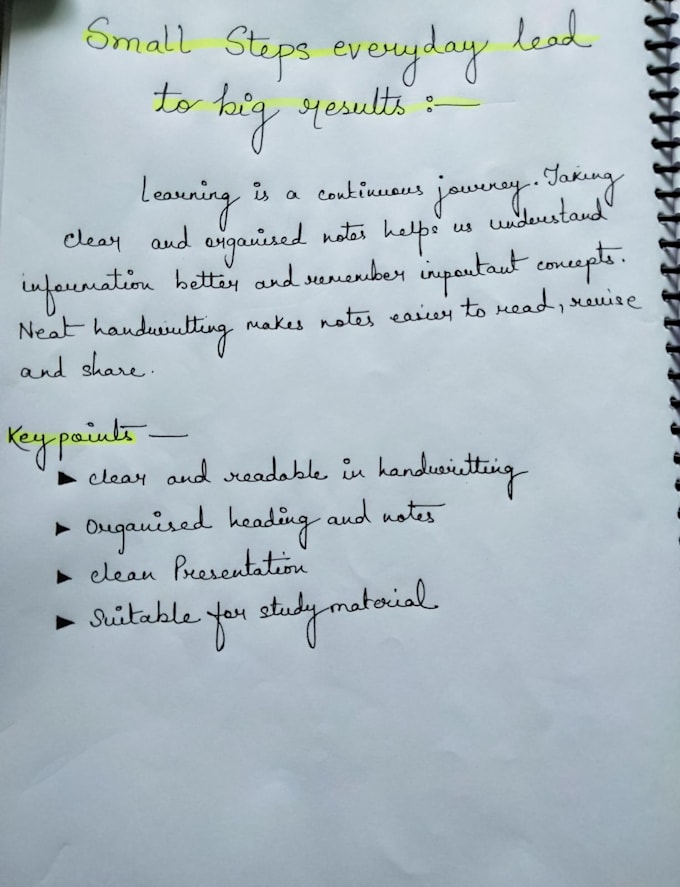 Small Steps everyday lead
to big results :—
Learning is a continuous journey. Taking
clear and organised notes helps us understand
information better and remember important concepts.
Neat handwritting makes notes easier to read, revise
and share.
Key points —
► clear and readable in handwritting
► Organised heading and notes
► clean Presentation
► Suitable for study material